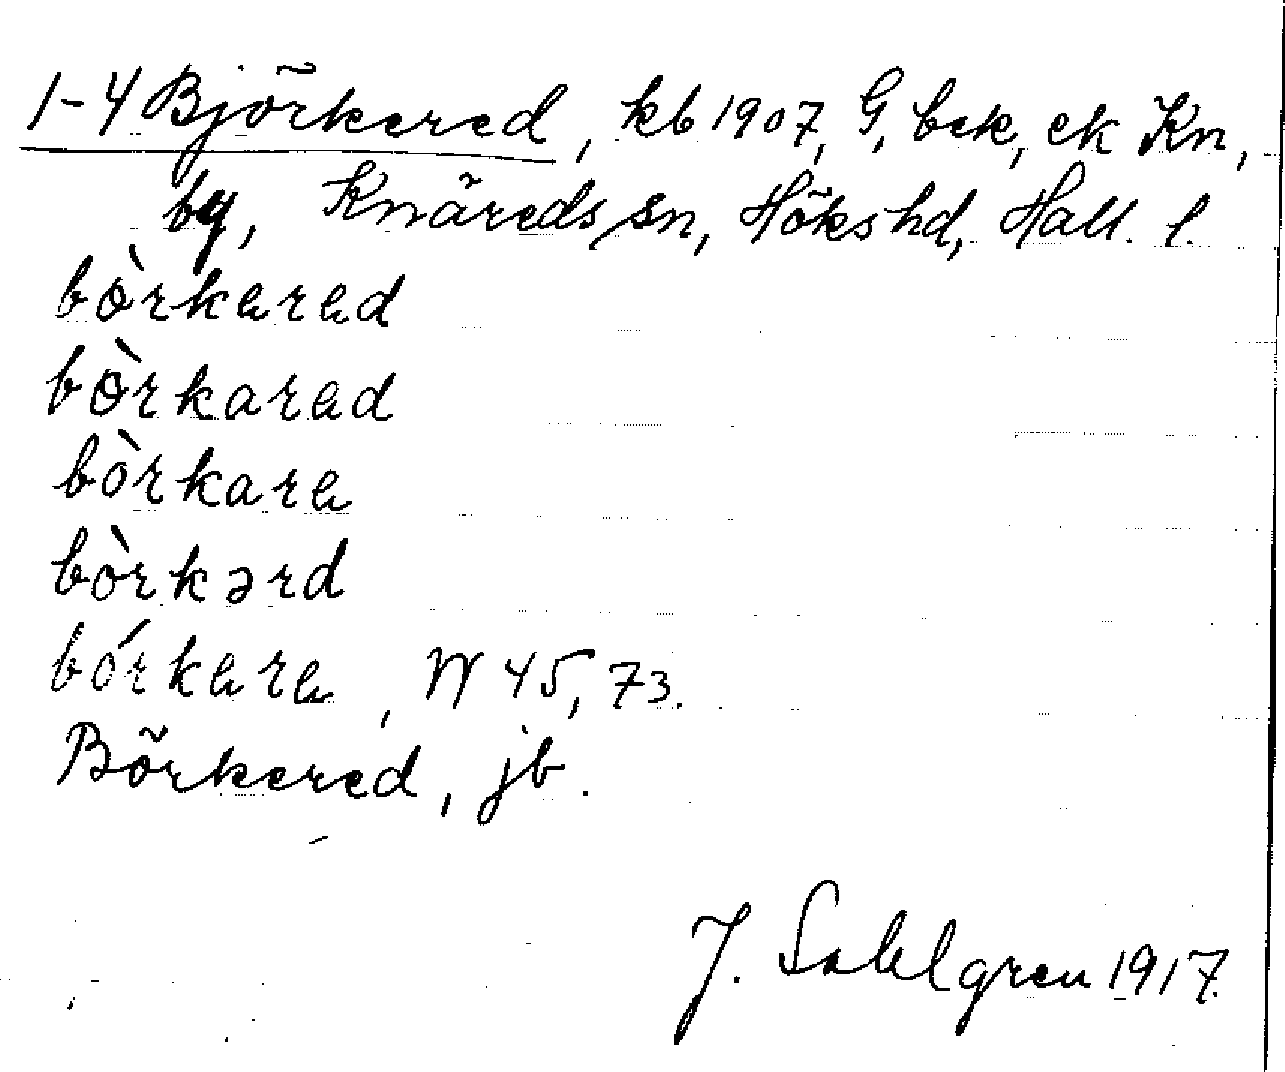 1-4 Björkered, kb 1907, G, bek, ek Kn,
by, Knäreds sn, Höks hd, Hall. l.
bòrkarad
bòrkarad
bòrkara
bòrkərd
bórkara, W 45, 73.
Börkered, jb.
J. Sahlgren 1917.